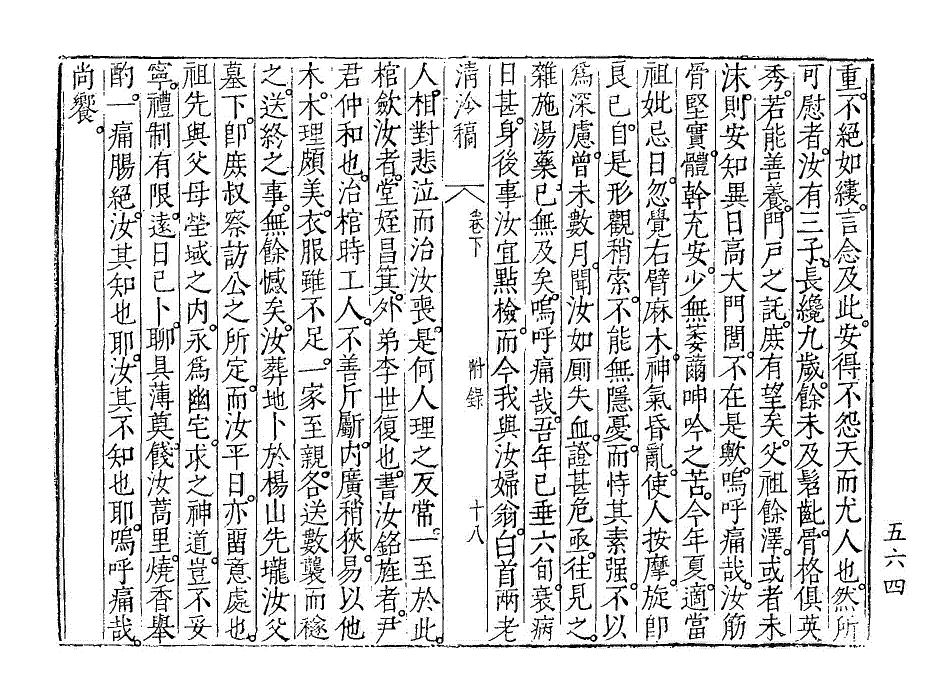 重。不絕如縷。言念及此。安得不怨天而尤人也。然所
可慰者。汝有三子。長纔九歲。餘未及髫齔。骨格俱英
秀。若能善養。門戶之託。庶有望矣。父祖餘澤。或者未
沫。則安知異日高大門閭。不在是歟。嗚呼痛哉。汝筋
骨堅實。體幹充安。少無萎薾呻吟之苦。今年夏。適當
祖妣忌日。忽覺右臂麻木。神氣昏亂。使人按摩。旋卽
良已。自是形觀稍索。不能無隱憂。而恃其素强。不以
爲深慮。曾未數月。聞汝如厠失血。證甚危亟。往見之。
雜施湯藥。已無及矣。嗚呼痛哉。吾年已垂六旬。衰病
日甚。身後事汝宜點檢。而今我與汝婦翁。白首兩老
清泠稿 卷下 附錄 十八
人。相對悲泣而治汝喪。是何人理之反常。一至於此。
棺斂汝者。堂姪昌箕。外弟李世復也。書汝銘旌者。尹
君仲和也。治棺時工人。不善斤斸。內廣稍狹。易以他
木。木理頗美。衣服雖不足。一家至親。各送數襲而襚
之。送終之事。無餘憾矣。汝葬地卜於楊山先壠汝父
墓下。卽庶叔察訪公之所定。而汝平日。亦留意處也。
祖先與父母塋域之內。永爲幽宅。求之神道。豈不妥
寧。禮制有限。遠日已卜。聊具薄奠。餞汝蒿里。燒香擧
酌。一痛腸絕。汝其知也耶。汝其不知也耶。嗚呼痛哉。
尙饗。
五六四